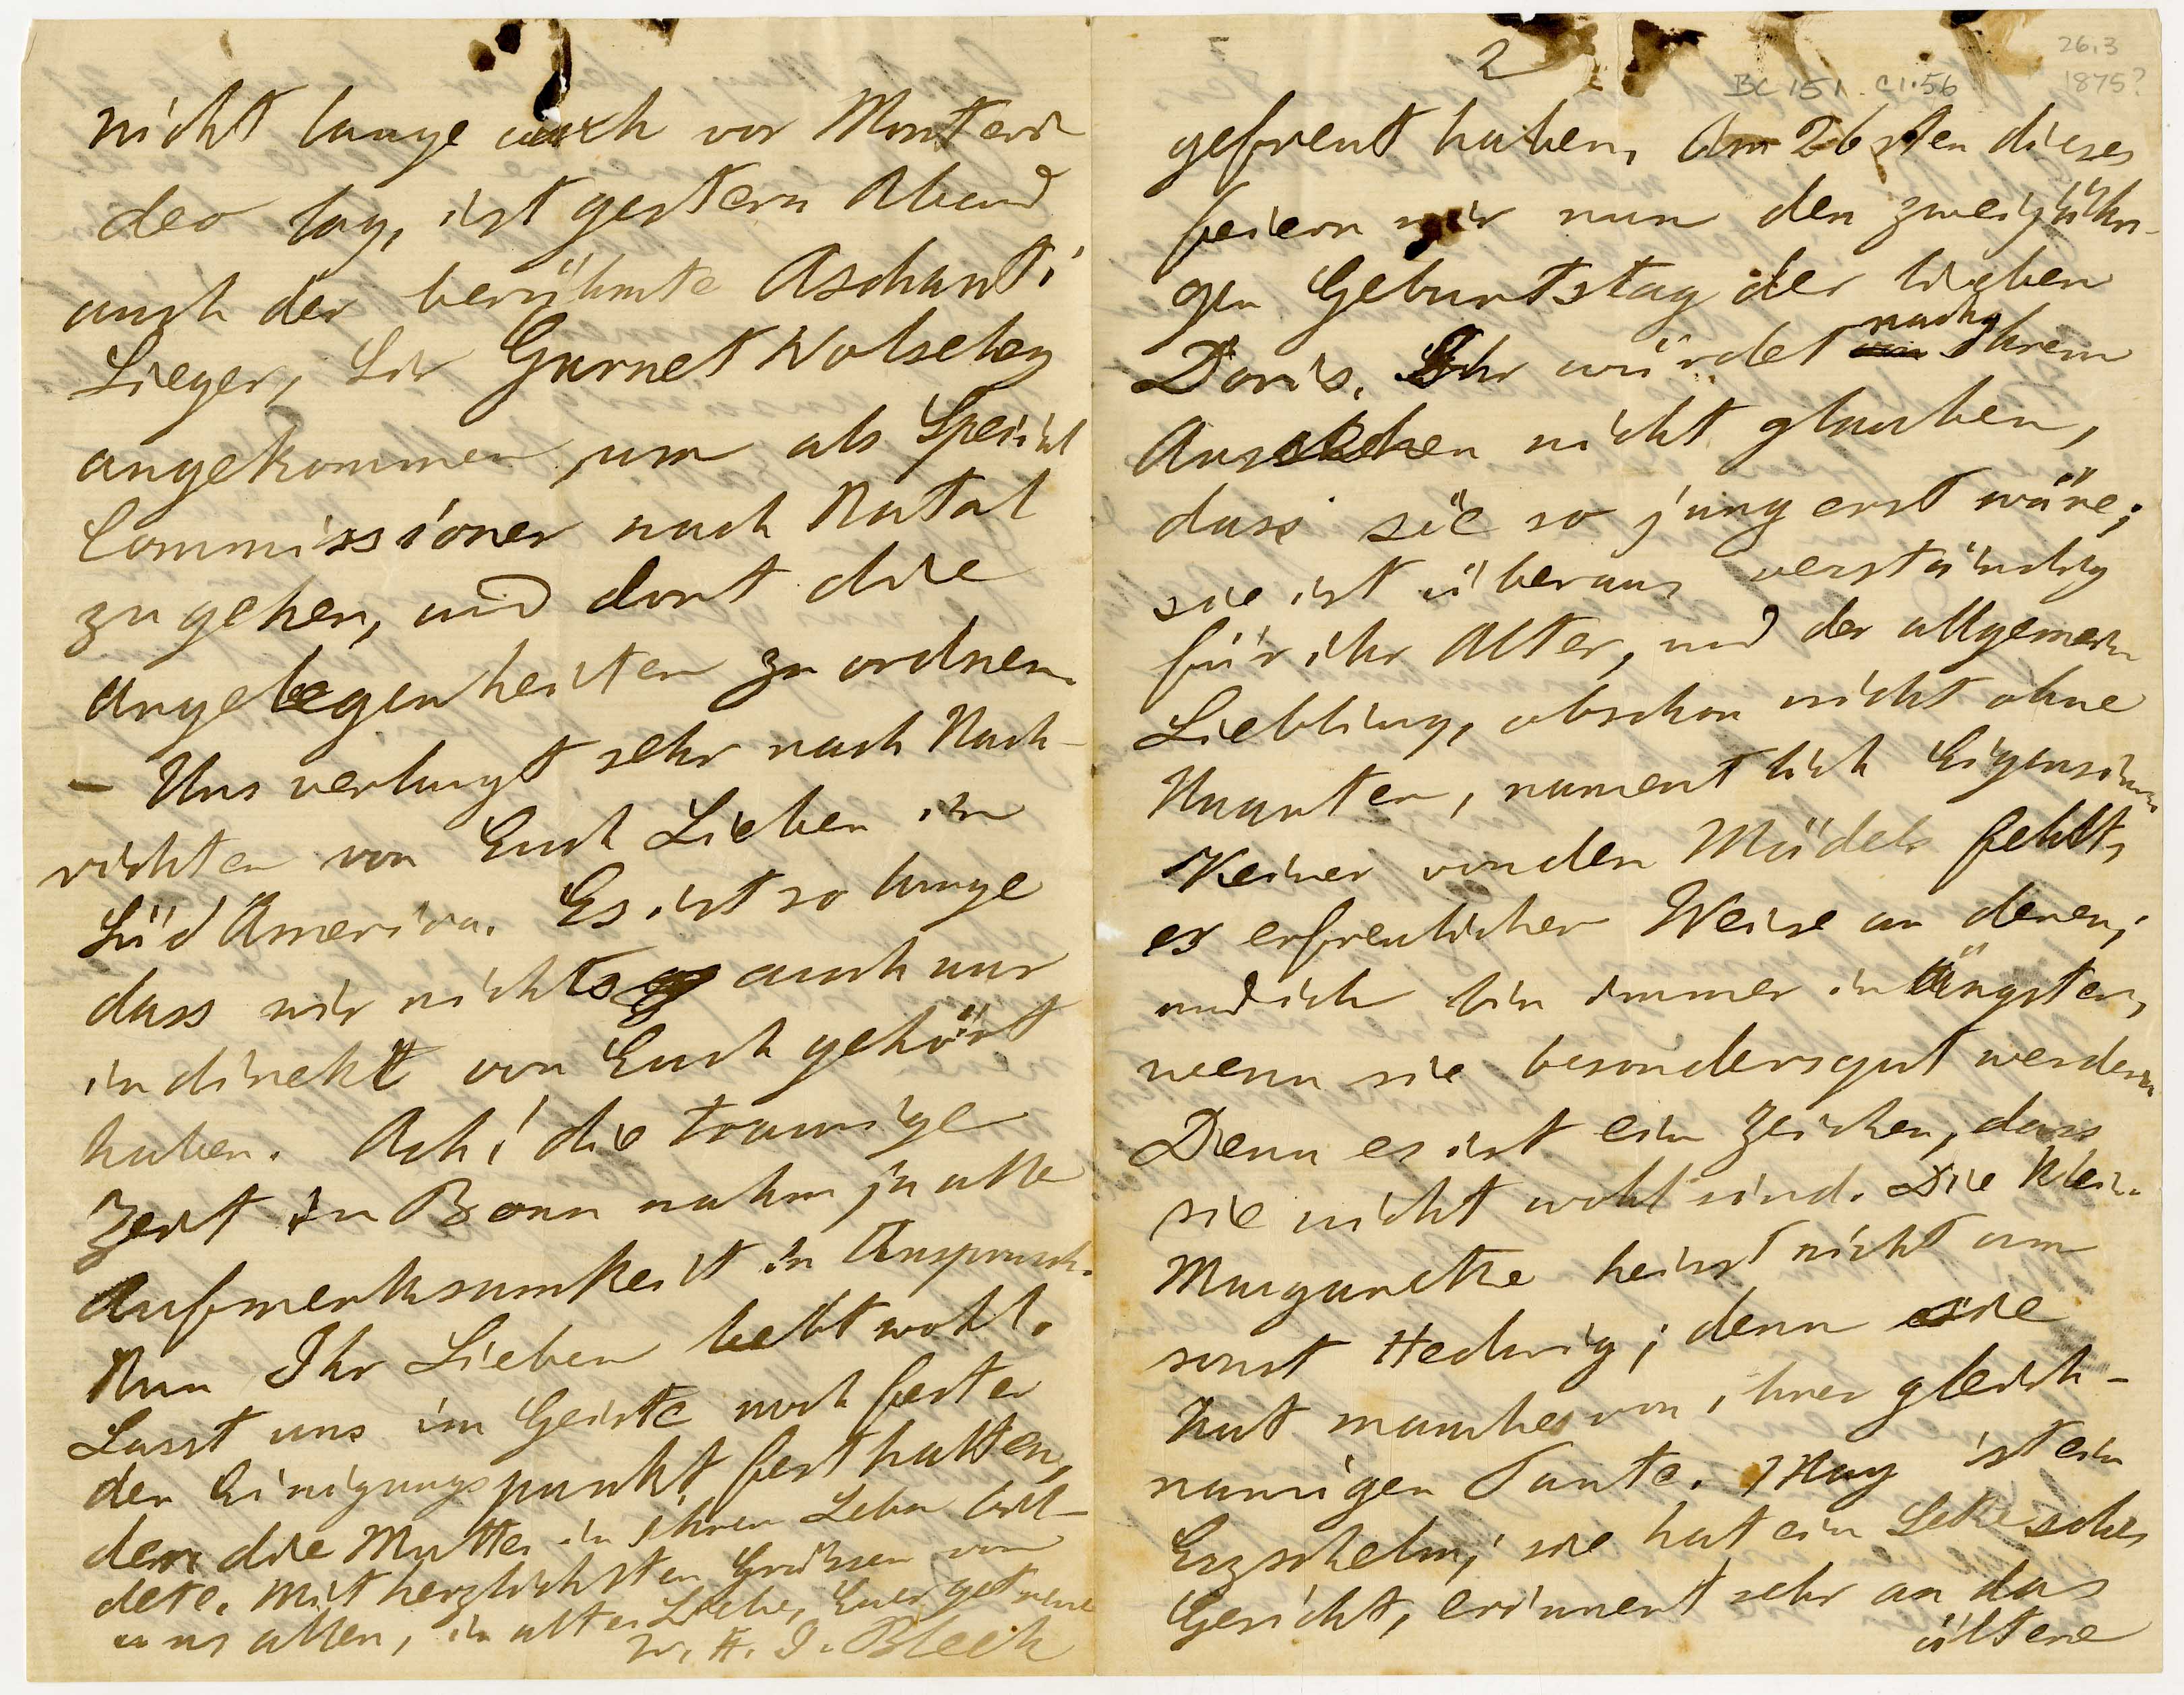 nicht lange auch vor Montevi
deo lag, ist gestern Abend
auch der berühmte Aschanti
Sieger, Sir Garnet Wolseley
angekommen, um als Special
Commissioner nach Natal
zu gehen, und dort die
Angelegenheiten zu ordnen.
– Uns verlangt sehr nach Nach-
richten von Euch Lieben in
Süd America. Es ist so lange
dass wir nichts auch nur
indirekt von Euch gehört
haben. Ach! die traurige
Zeit in Bonn nahm ja alle
Aufmerksamkeit in Anspruch.
Nun Ihr Lieben lebt wohl.
Lasst uns im Geiste noch fester
den Einigungspunkt festhalten,
den die Mutter in ihrem Leben bil-
dete. Mit herzlichsten Grüssen von
uns allen, in alter Liebe, Euer getreuer
W. H. I. Bleek
2
26.3
1875?
BC 151. C1.56
gefreut haben. Am 26sten dieses
feiern wir nun den zweijähri-
gen Geburtstag der lieben
Doris. Ihr würdet nach ihrem
Aussehen nicht glauben,
dass sie so jung erst wäre;
sie ist überaus verständig
für ihr Alter, und der allgemein
Liebling, obschon nicht ohne
Unarten, namentlich Eigensinn
Keiner von den Mädels fehlt,
es erfreulicher Weise an denen;
und ich bin immer in Ängsten,
wenn sie besonders gut werden
Denn es ist ein Zeichen, dass
sie nicht wohl sind. Die klein
Margarethe heisst nicht um
sonst Hedwig; denn sie
hat manches von ihrer gleich-
namigen Tante. May ist ein
Erzschelm; sie hat ein Sethesches
Gesicht, erinnert sehr an das
ältere